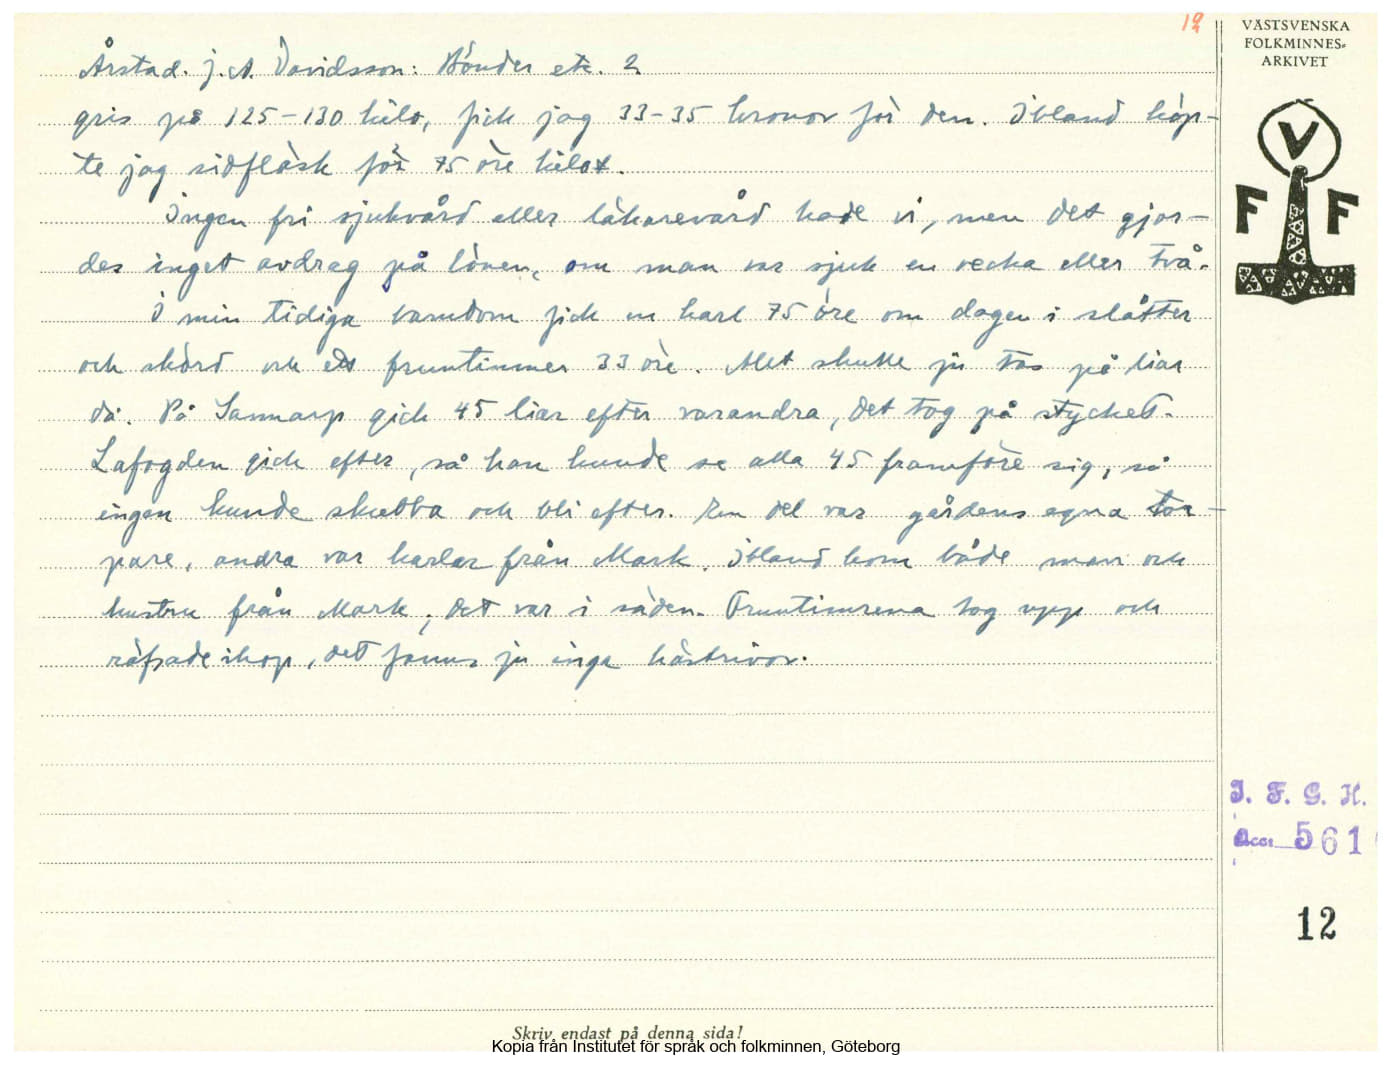 12
Årstad. J. A. Davidsson: Bönder etc. 2.
gris på 125-130 kilo, fick jag 33-35 kronor för den. Ibland köp-
te jag sidfläsk för 75 öre kilot.
Ingen fri sjukvård eller läkarevård hade vi, men det gjor-
des inget avdrag på lönen, om man var sjuk en vecka eller två.
I min tidiga barndom fick en karl 75 öre om dagen i slåtter
och skörd och ett fruntimmer 33 öre. Allt skulle ju tas på liar
då. På Sannarp gick 45 liar efter varandra, det tog på stycket.
Lafogden gick efter, så han kunde se alla 45 framföre sig, så
ingen kunde skubba och bli efter. En del var gårdens egna tor-
pare, andra var karlar från Mark. Ibland kom både man och
hustru från Mark, det var i säden. Fruntimrena tog upp och
räfsade ihop, det fanns ju inga hästrivor.
VÄSTSVENSKA
FOLKMINNES-
ARKIVET
V
F F
I. F. G. H.
Acc. 561
12
Skriv endast på denna sida!
Kopia från Institutet för språk och folkminnen, Göteborg